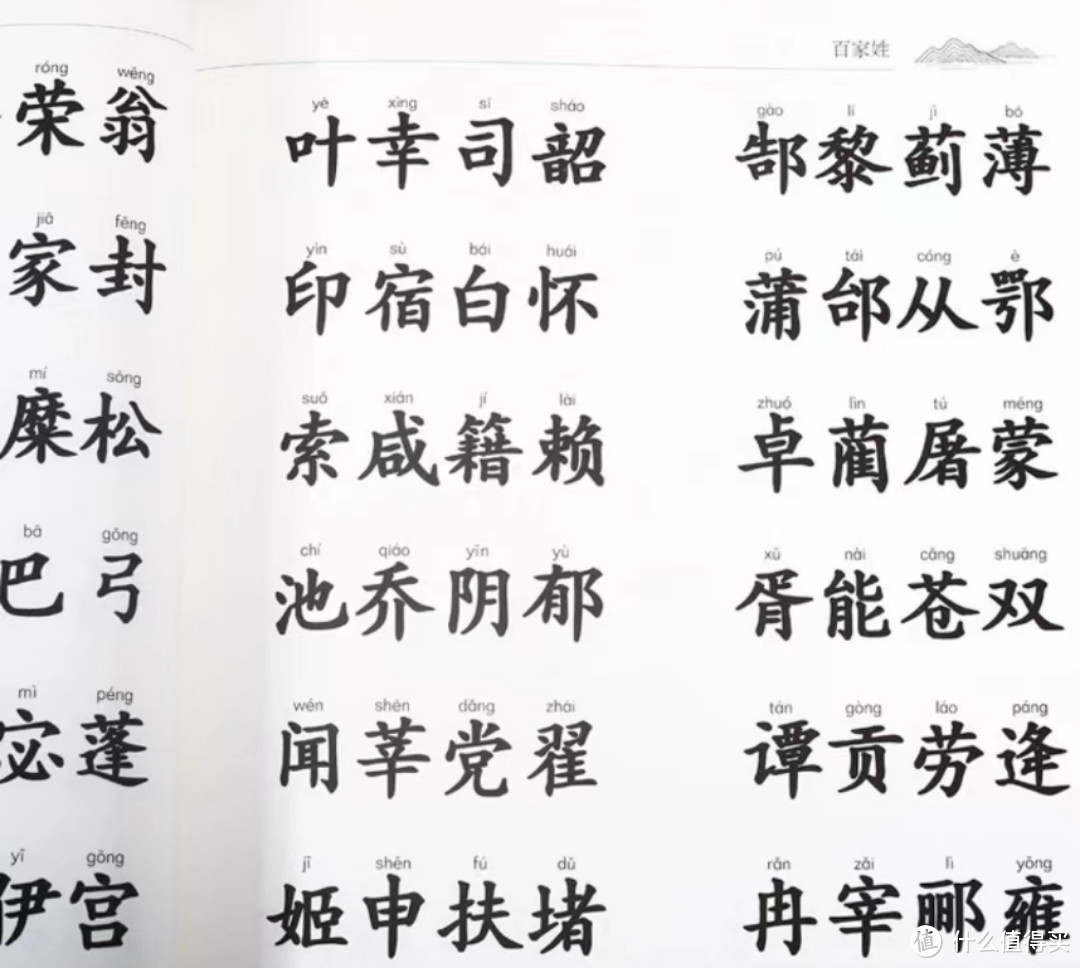 百家姓
róng wēng
荣翁
jiā fēng
家封
mí sōng
糜松
bā gōng
巴弓
mì péng
宓蓬
yī gōng
伊宫
yè xìng sī sháo
叶幸司韶
yìn sù bái huái
印宿白怀
suǒ xián jí lài
索咸籍赖
chí qiáo yīn yù
池乔阴郁
wén shēn dǎng zhái
闻莘党翟
jī shēn fú dǔ
姬申扶堵
gào lí jì bó
郜黎蓟薄
pú tái cóng è
蒲邰从鄂
zhuó lìn tú méng
卓蔺屠蒙
xū nài cāng shuāng
胥能苍双
tán gòng láo páng
谭贡劳逄
rǎn zǎi lì yōng
冉宰郦雍
值 什么值得买